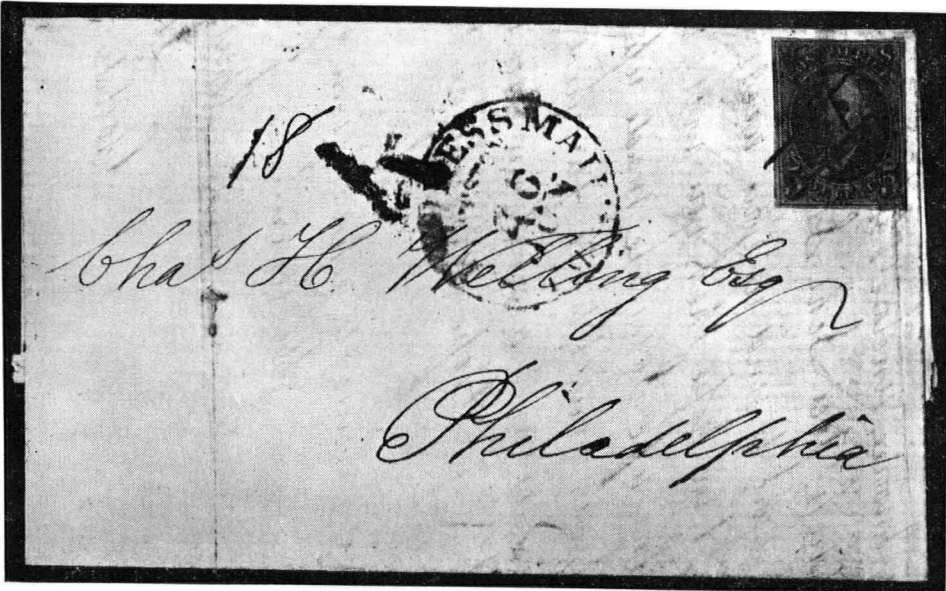 ESS MAIL
18
Chas H. Welling Esq
Philadelphia